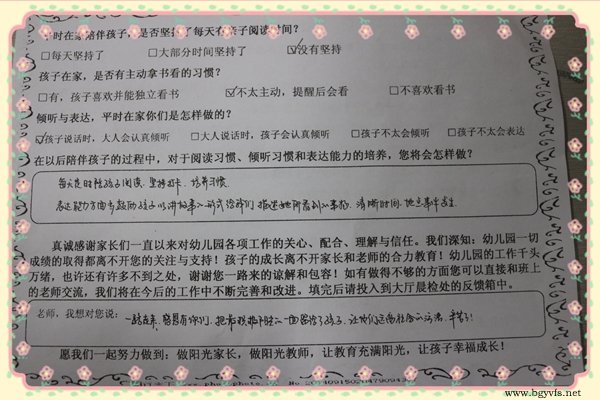 平时在家陪伴孩子，是否坚持了每天有亲子阅读时间？
□每天坚持了 □大部分时间坚持了 ☑没有坚持
孩子在家，是否有主动拿书看的习惯？
□有，孩子喜欢并能独立看书 ☑不太主动，提醒后会看 □不喜欢看书
倾听与表达，平时在家你们是怎样做的？
☑孩子说话时，大人会认真倾听 □大人说话时，孩子会认真倾听 □孩子不太会倾听 □孩子不太会表达
在以后陪伴孩子的过程中，对于阅读习惯、倾听习惯和表达能力的培养，您将会怎样做？
每天定时陪孩子阅读、坚持打卡、培养习惯.
表达能力方面多鼓励孩子以讲故事的形式给我们描述她所看到的事物、清晰时间、地点事件发生.
真诚感谢家长们一直以来对幼儿园各项工作的关心、配合、理解与信任。我们深知：幼儿园一切
成绩的取得都离不开您的关注与支持！孩子的成长离不开家长和老师的合力教育！幼儿园的工作千头
万绪，也许还有许多不到之处，谢谢您一路来的谅解和包容！如有做得不够的方面您可以直接和班上
的老师交流，我们将在今后的工作中不断完善和改进。填完后请投入到大厅晨检处的反馈箱中。
老师，我想对您说：一路走来，容易有你们，把最 的一面 给了孩子，让他们 的 ，辛苦了！
愿我们一起努力做到：做阳光家长，做阳光教师，让教育充满阳光，让孩子幸福成长！
www.bgyvfs.net